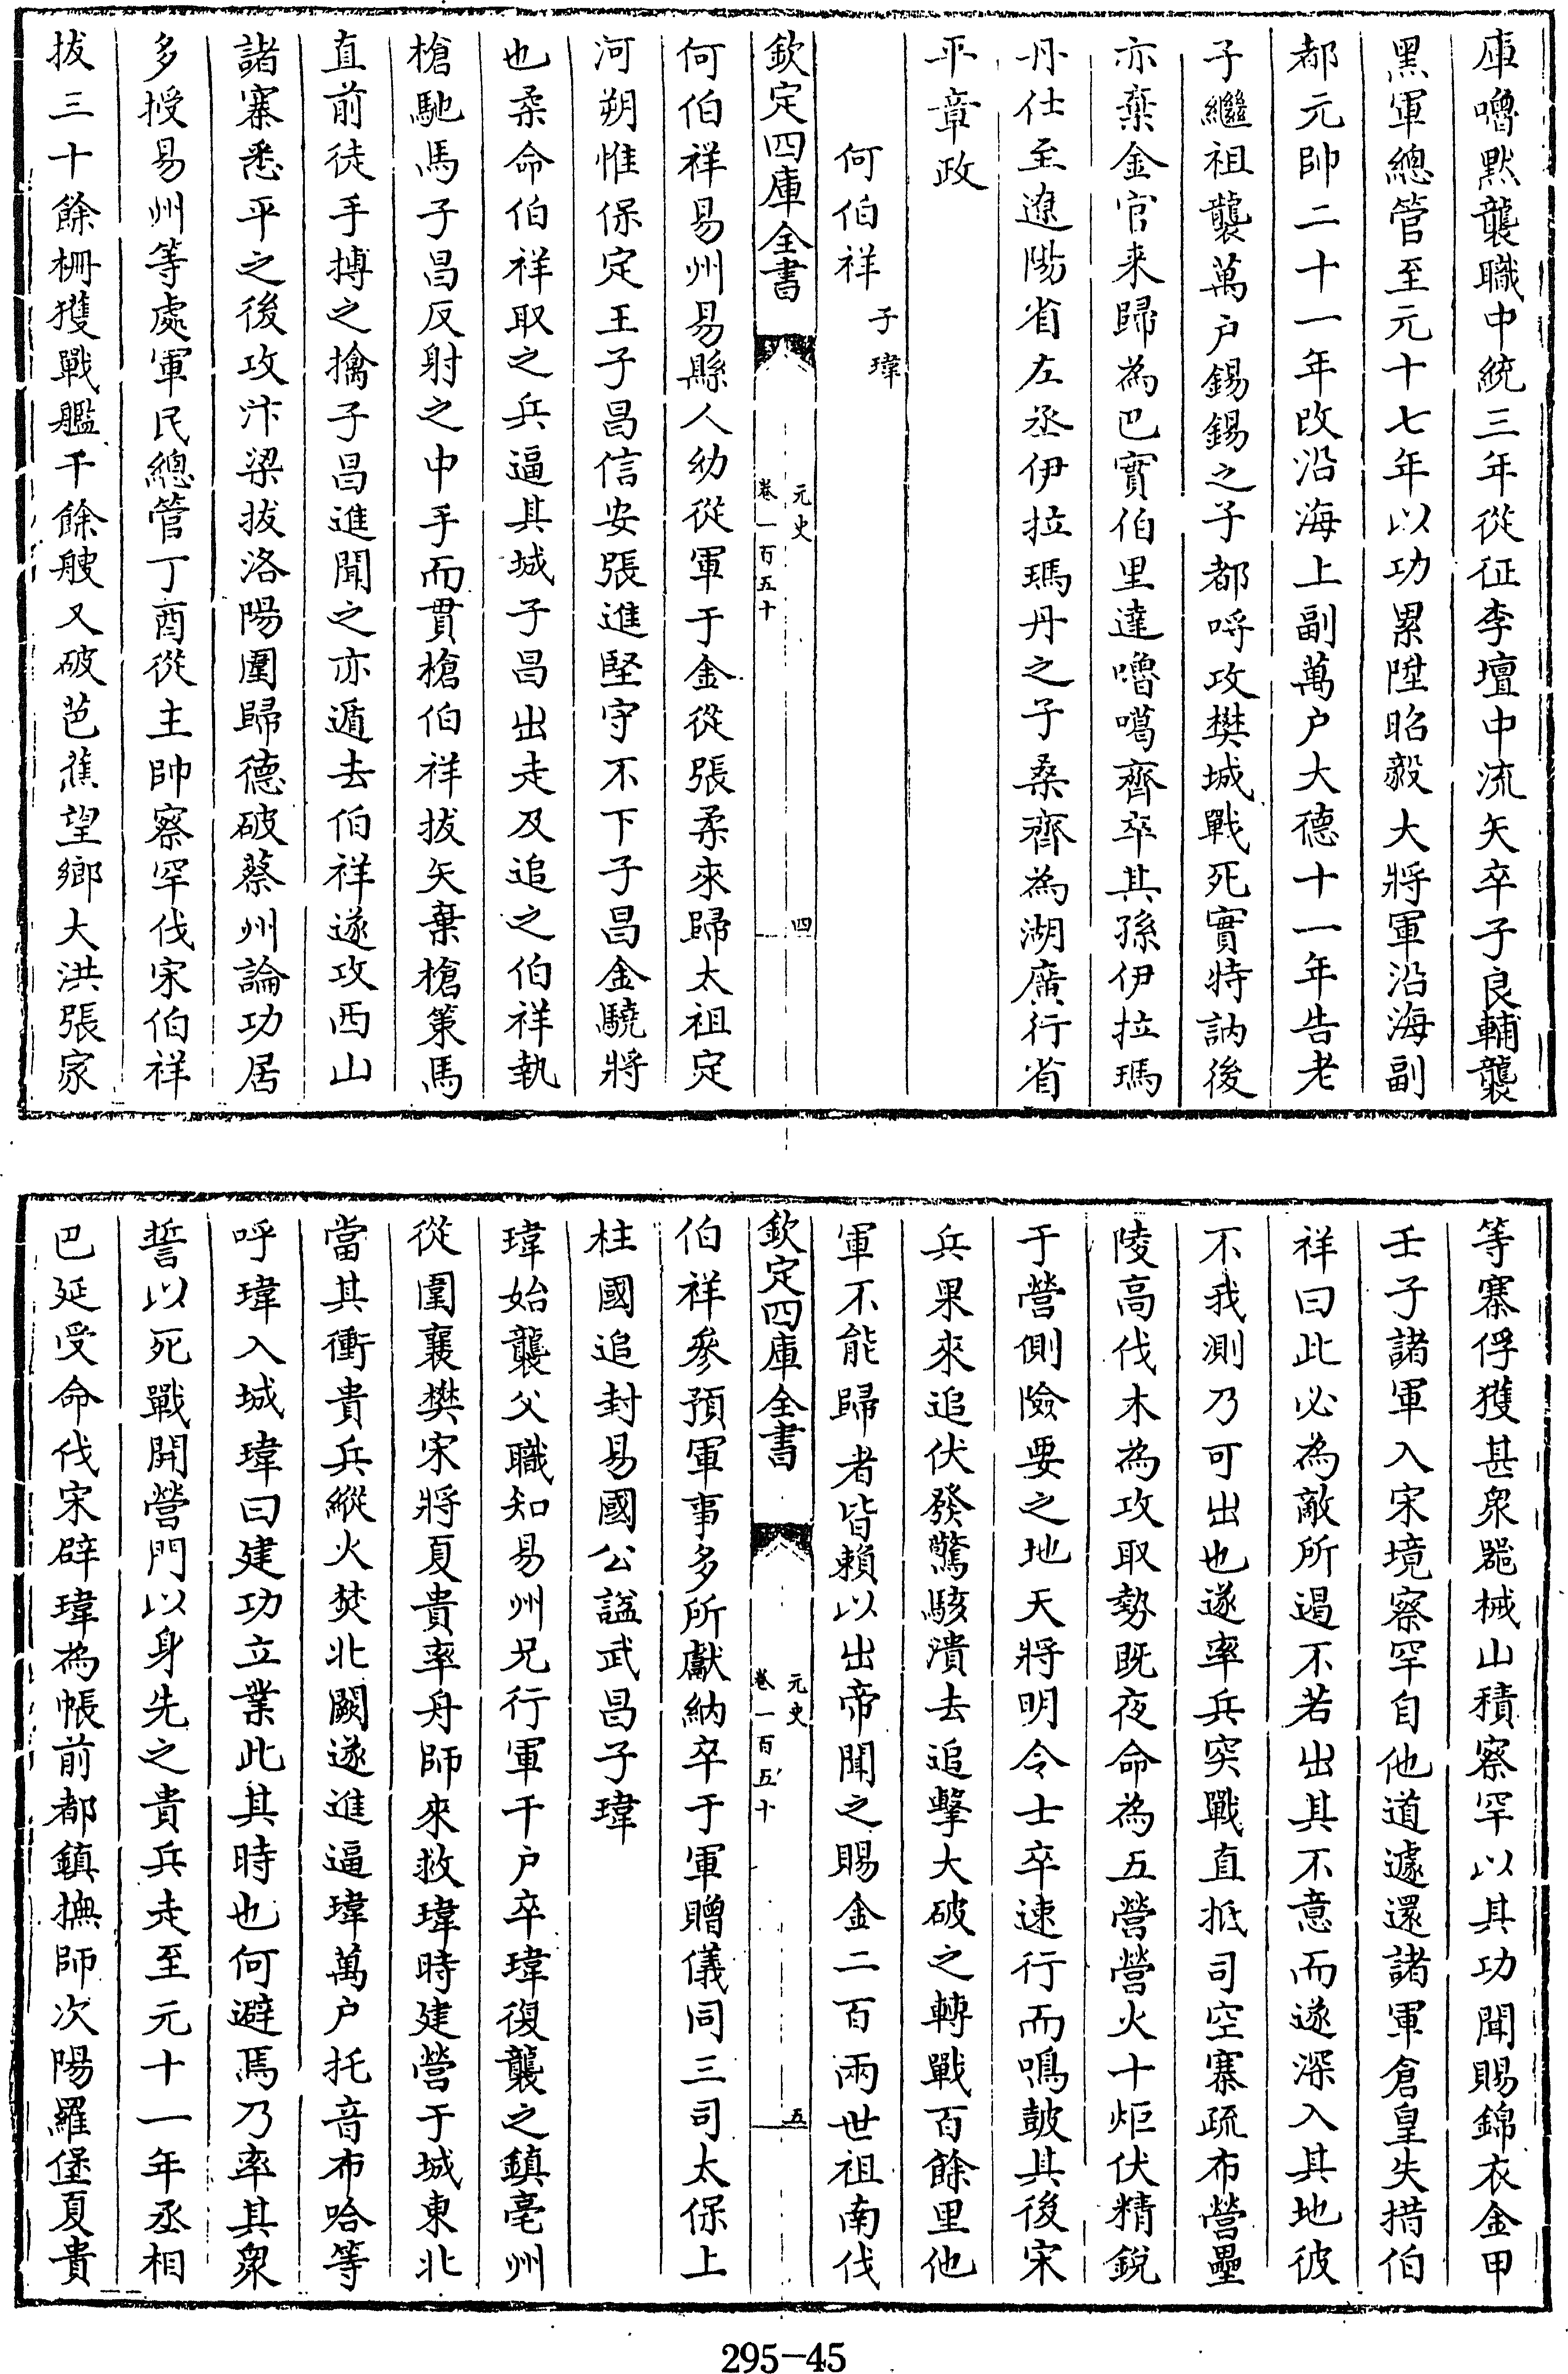 庫嚕默襲職中統三年從征李壇中流矢卒子良輔襲
黑軍總管至元十七年以功累陞昭毅大將軍沿海副
都元帥二十一年改沿海上副萬户大德十一年告老
子繼祖襲萬户錫錫之子都哷攻樊城戰死實特訥後
亦棄金官来歸為巴實伯里達嚕噶齊卒其孫伊拉瑪
丹仕至遼陽省左丞伊拉瑪丹之子桑齊為湖廣行省
平章政
何伯祥 子瑋
欽定四庫全書
元史
卷一百五十
四
何伯祥易州易縣人幼從軍于金從張柔來歸太祖定
河朔惟保定王子昌信安張進堅守不下子昌金驍將
也柔命伯祥取之兵逼其城子昌出走及追之伯祥執
槍馳馬子昌反射之中手而貫槍伯祥拔矢棄槍策馬
直前徒手搏之擒子昌進聞之亦遁去伯祥遂攻西山
諸寨悉平之後攻汴梁拔洛陽圍歸德破蔡州論功居
多授易州等處軍民總管丁酉從主帥察罕伐宋伯祥
拔三十餘柵獲戰艦千餘艘又破芭蕉望鄉大洪張家
等寨俘獲甚衆噐械山積察罕以其功聞賜錦衣金甲
壬子諸軍入宋境察罕自他道遽還諸軍倉皇失措伯
祥曰此必為敵所遏不若出其不意而遂深入其地彼
不我測乃可出也遂率兵突戰直抵司空寨疏布營壘
陵高伐木為攻取勢既夜命為五營營火十炬伏精銳
于營側險要之地天將明令士卒速行而鳴鼓其後宋
兵果來追伏發驚駭潰去追擊大破之轉戰百餘里他
軍不能歸者皆賴以出帝聞之賜金二百兩世祖南伐
欽定四庫全書
元史
卷一百五十
五
伯祥參預軍事多所獻納卒于軍贈儀同三司太保上
柱國追封易國公諡武昌子瑋
瑋始襲父職知易州兄行軍千户卒瑋復襲之鎮亳州
從圍襄樊宋將夏貴率舟師來救瑋時建營于城東北
當其衝貴兵縱火焚北闕遂進逼瑋萬户托音布哈等
呼瑋入城瑋曰建功立業此其時也何避焉乃率其衆
誓以死戰開營門以身先之貴兵走至元十一年丞相
巴延受命伐宋辟瑋為帳前都鎮撫師次陽羅堡夏貴
295-45